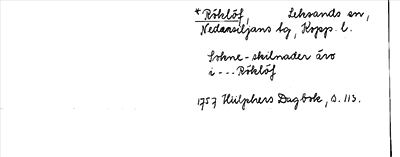 *Röklöf, Leksands sn,
Nedansiljans tg, Kopp. l.
Sokne-skilnader äro
i --- Röklöf
1757 Hülphers Dagbok, s. 113.